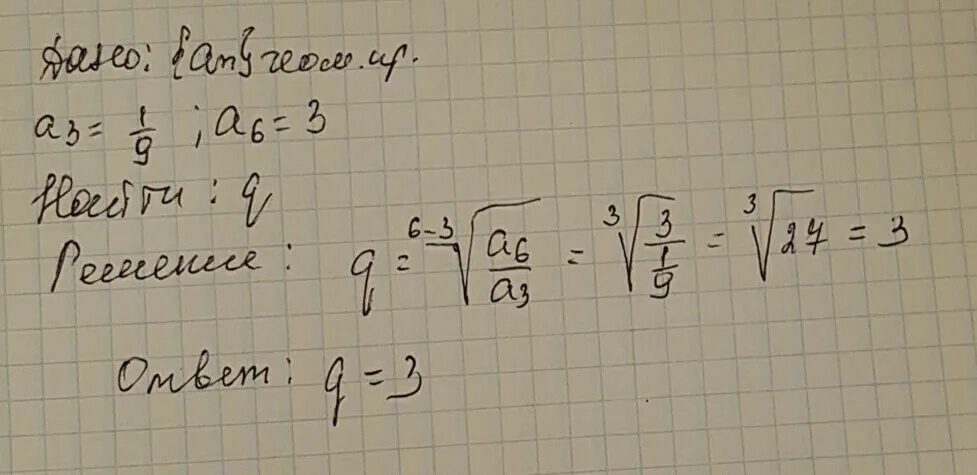 Дано: {an} геом. пр.
a3 = 1/9 ; a6 = 3
Найти : q
Решение : q = ^{6-3}√(a6/a3) = ³√(3/(1/9)) = ³√27 = 3
Ответ : q = 3